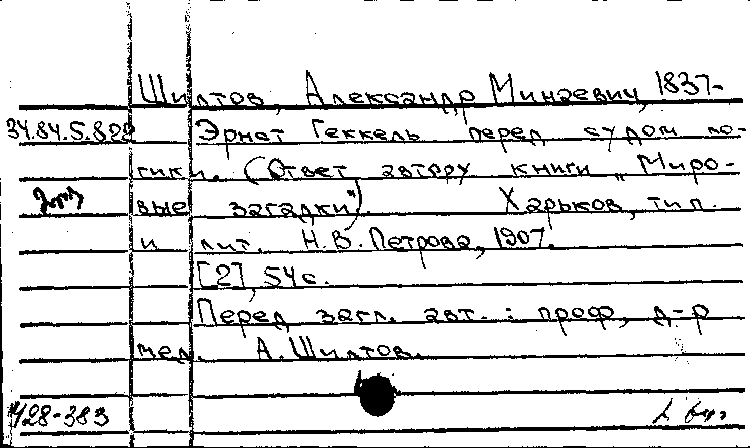 Шилтов, Александр Минаевич, 1837-
34.84.5.822 Эрнст Геккель перед судом ло-
гики. (Ответ автору книги „Миро-
вые загадки") Харьков, тип.
и лит. Н.В. Петрова, 1907.
[2], 54 с.
Перед загл. авт.: проф., д-р
мед. А. Шилтов.
428-383